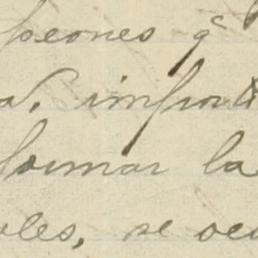 peones q̃
a, import
formar la
les, se ocu